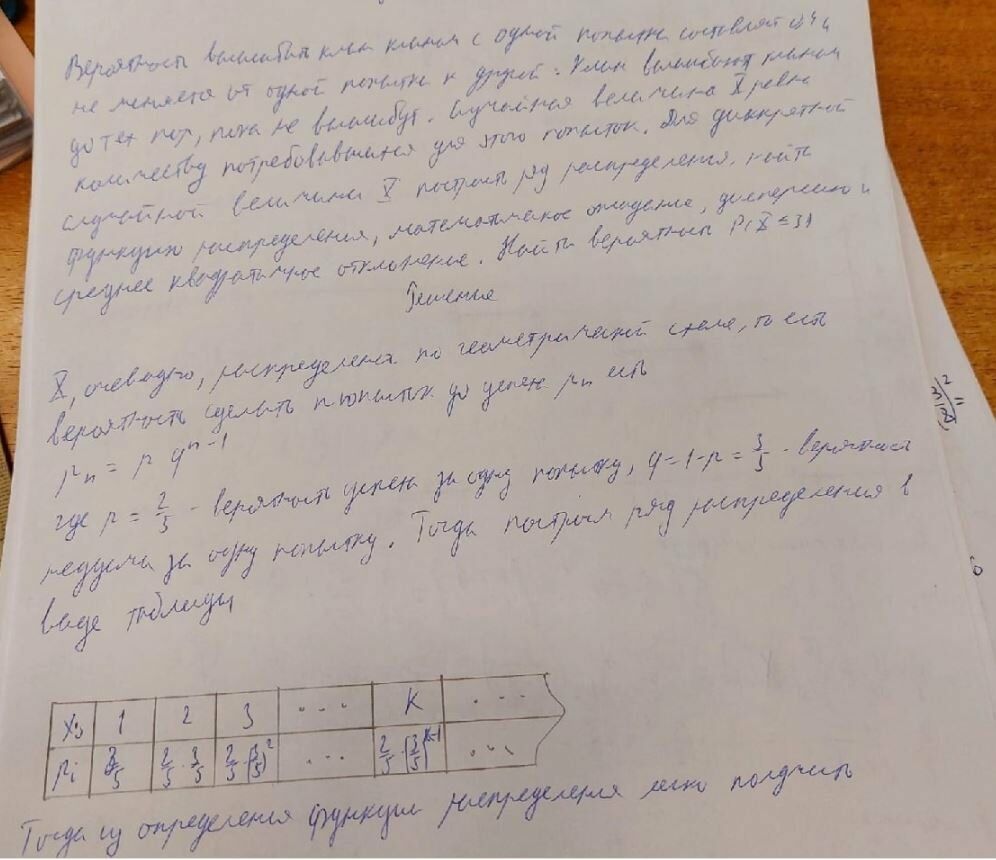 Вероятность вышибить клин клином с одной попытки составляет 0,4 и
не меняется от одной попытки к другой. Клин вышибают клином
до тех пор, пока не вышибут. Случайная величина X равна
количеству потребовавшихся для этого попыток. Для дискретной
случайной величины X построить ряд распределения, найти
функцию распределения, математическое ожидание, дисперсию и
среднее квадратичное отклонение. Найти вероятность P(X ≤ 3)
Решение
X, очевидно, распределена по геометрической схеме, то есть
вероятность сделать n попыток до успеха pₙ есть
pₙ = p qⁿ⁻¹
где p = 2/5 - вероятность успеха за одну попытку, q = 1 - p = 3/5 - вероятность
неудачи за одну попытку. Тогда построим ряд распределения в
виде таблицы
1 2 3 ... K ...
pᵢ 2/5 2/5 · 3/5 2/5 · (3/5)² ... 2/5 · (3/5)ᵏ⁻¹ ...
Тогда из определения функции распределения легко получить